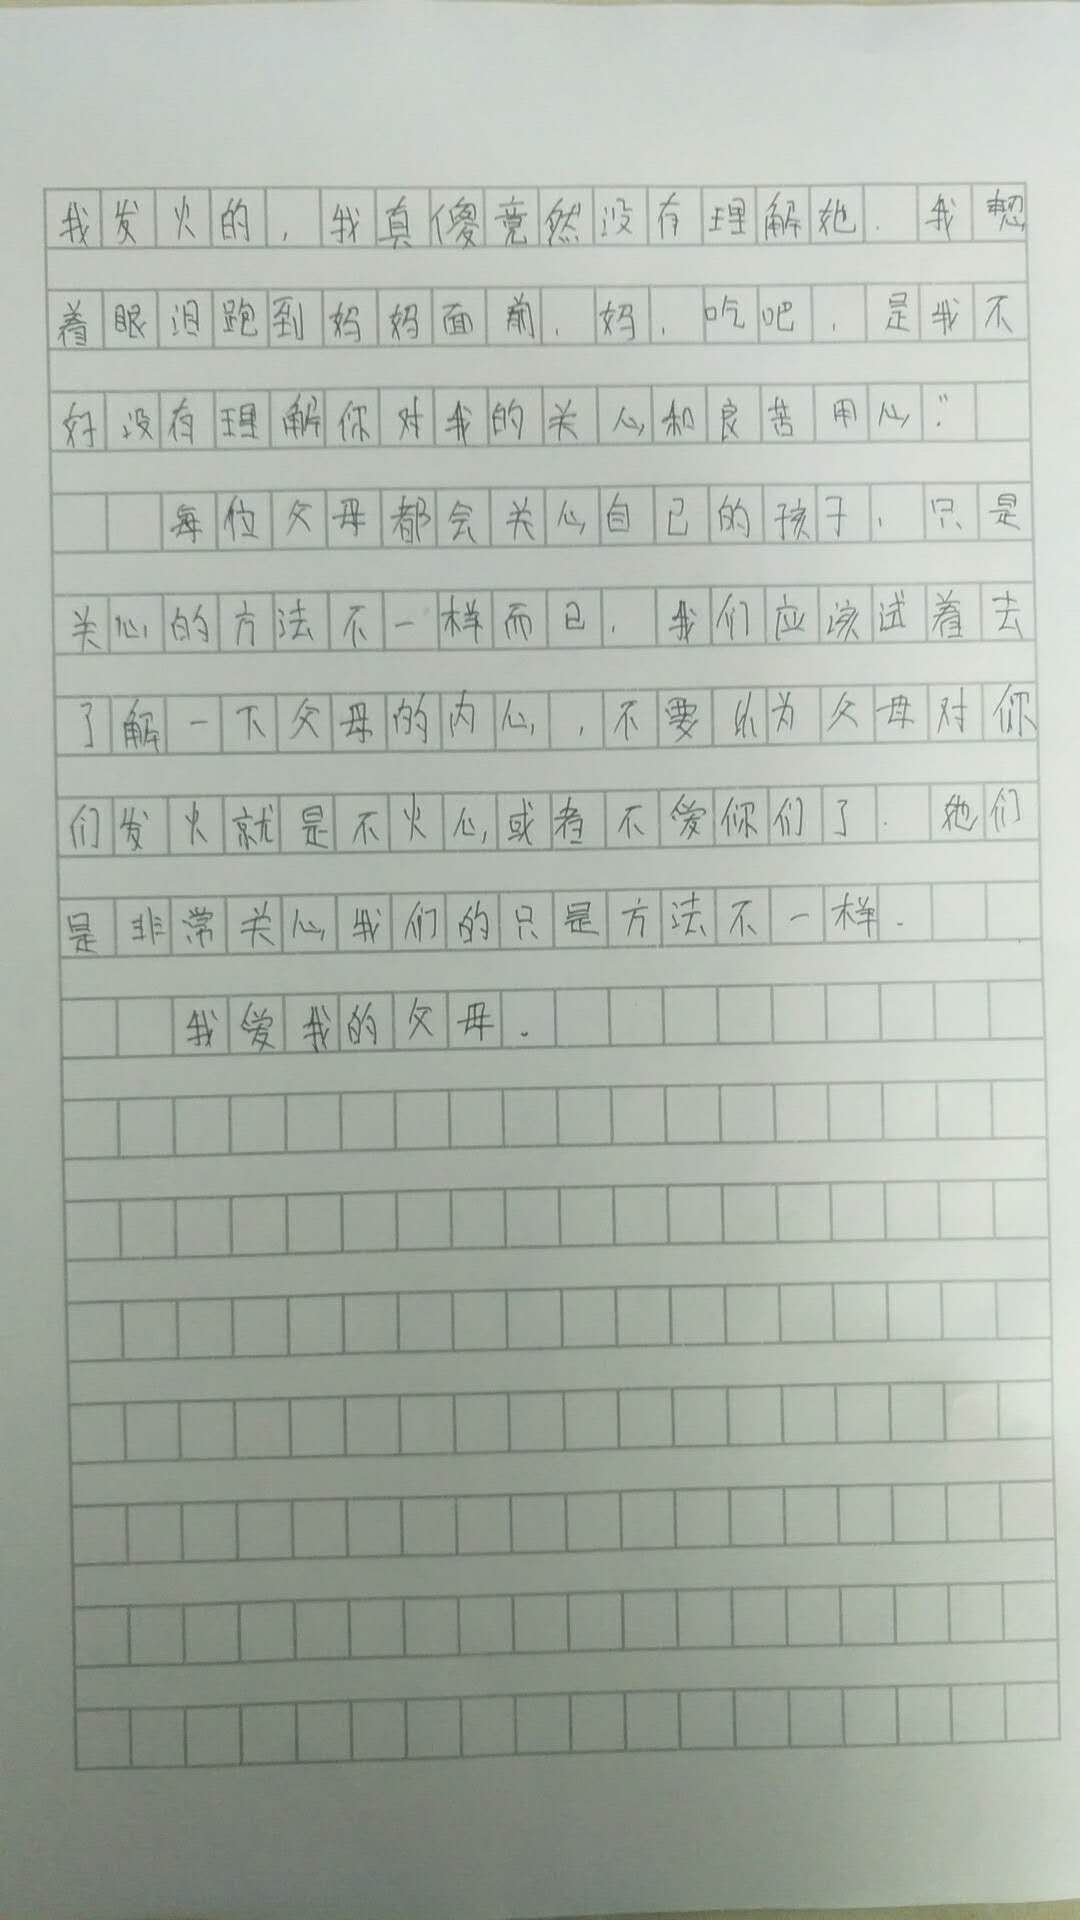 我发火的，我真傻竟然没有理解她．我
着眼泪跑到妈妈面前．妈，吃吧，是我不
好没有理解你对我的关心和良苦用心．"
每位父母都会关心自己的孩子，只是
关心的方法不一样而已．我们应该试着去
了解一下父母的内心，不要以为父母对你
们发火就是不火心或者不爱你们了．他们
是非常关心我们的只是方法不一样．
我爱我的父母．